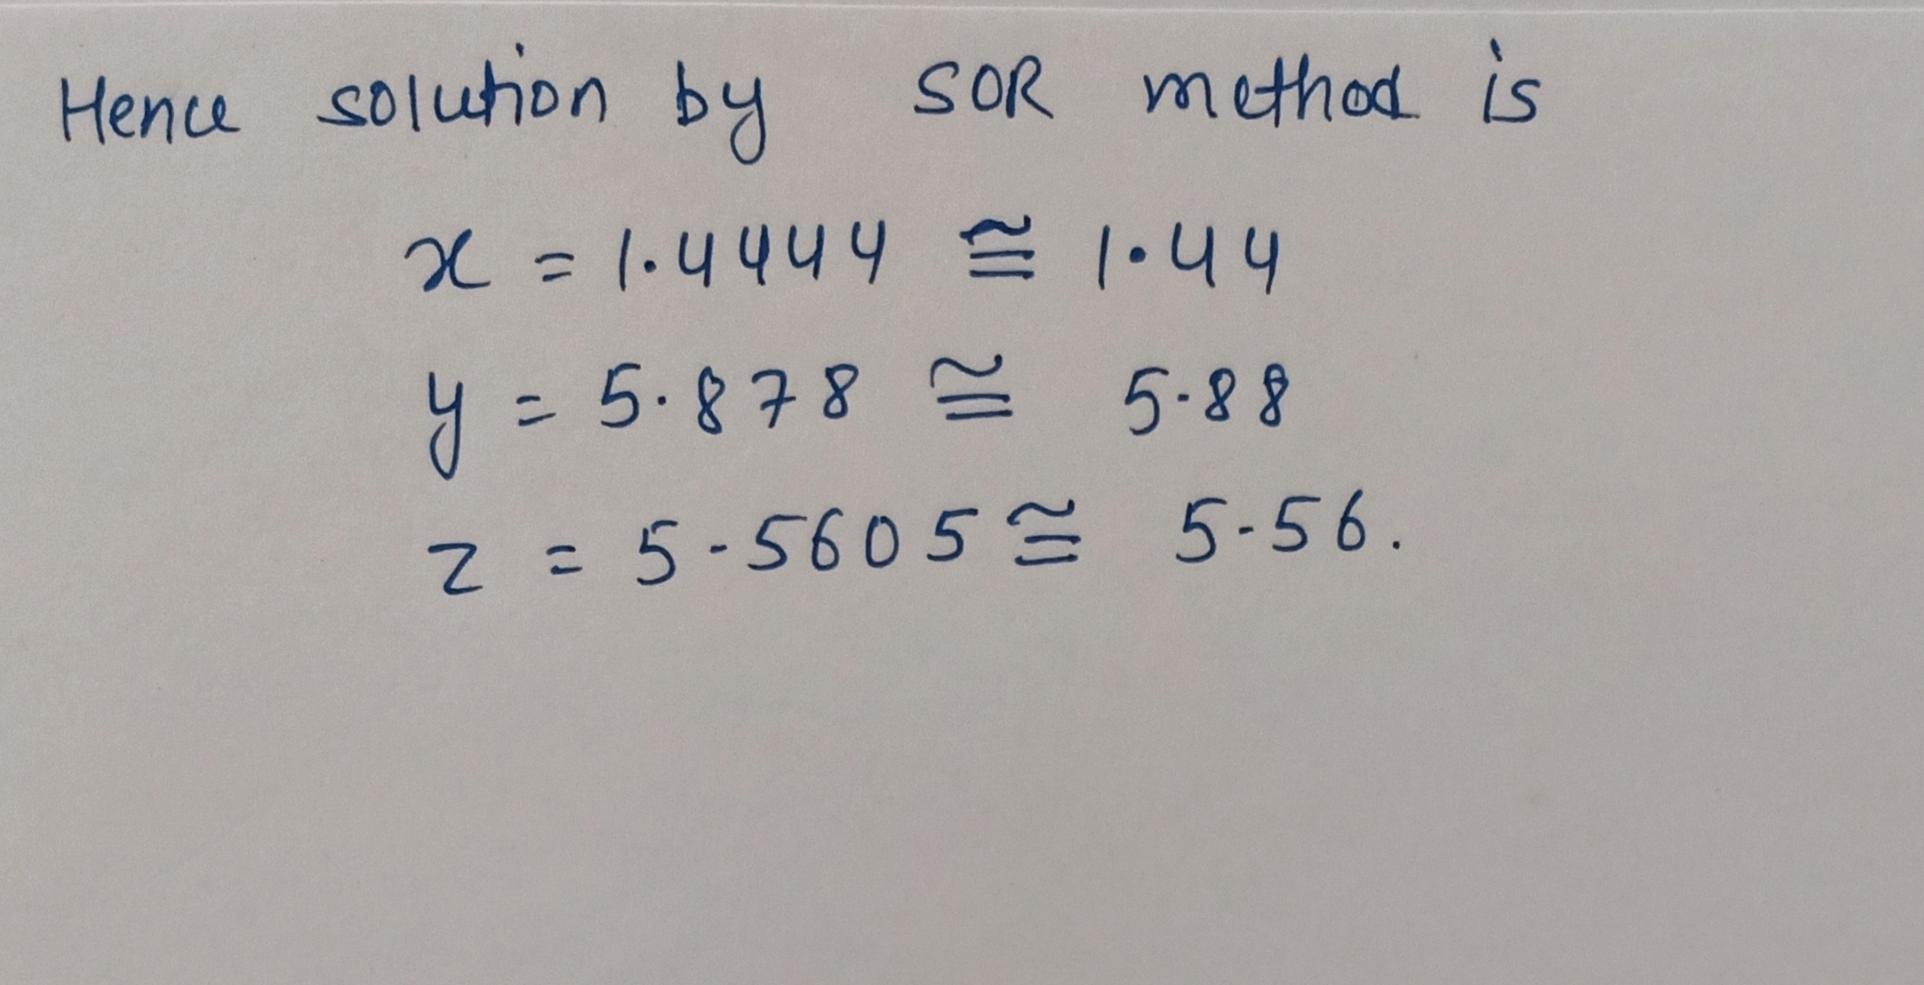 Hence solution by SOR method is
x = 1.4444 ≅ 1.44
y = 5.878 ≅ 5.88
z = 5.5605 ≅ 5.56.